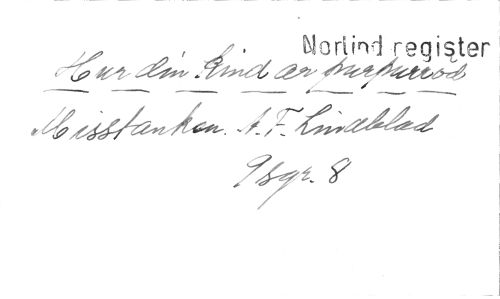 Norlind register
Hur din kind är purpurröd
Misstanken. A. F. Lindblad
9 sgr. 8